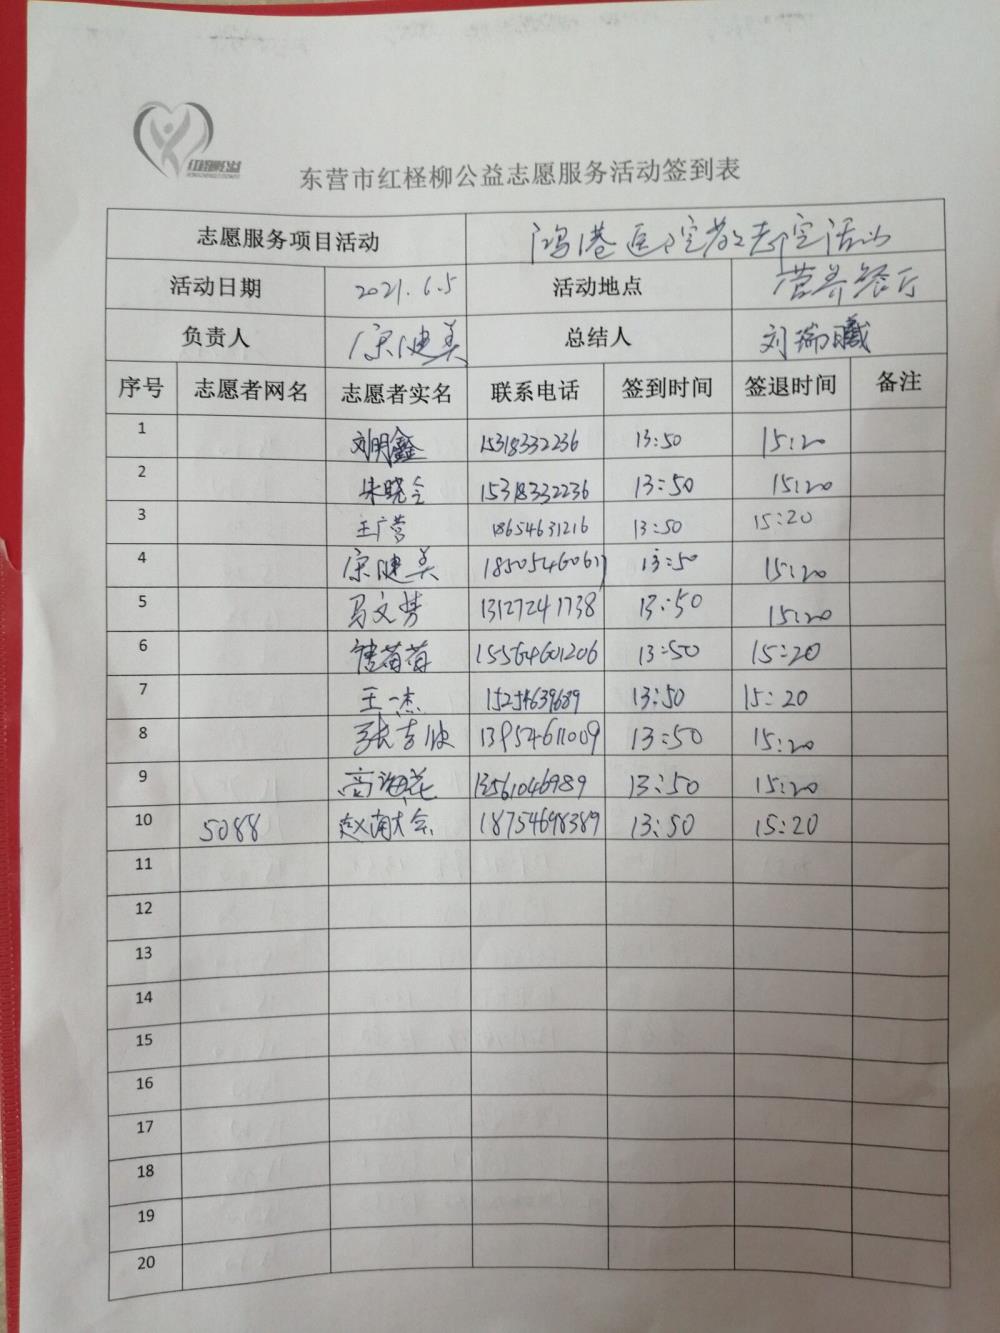 红柽柳公益
东营市红柽柳公益志愿服务活动签到表
志愿服务项目活动 鸿港医院敬老院活动
活动日期 2021.6.5 活动地点 营养餐厅
负责人 宋健美 总结人 刘瑞曦
序号 志愿者网名 志愿者实名 联系电话 签到时间 签退时间 备注
1 刘明鑫 15318332236 13:50 15:20
2 朱晓会 15318332236 13:50 15:20
3 王广营 18654631216 13:50 15:20
4 宋健美 18505460617 13:50 15:20
5 马文梦 13127241738 13:50 15:20
6 莺莺 15564601206 13:50 15:20
7 王一杰 15254639689 13:50 15:20
8 张吉欣 13954611009 13:50 15:20
9 高海花 13561046989 13:50 15:20
10 5088 赵南大会 18754698389 13:50 15:20
11
12
13
14
15
16
17
18
19
20